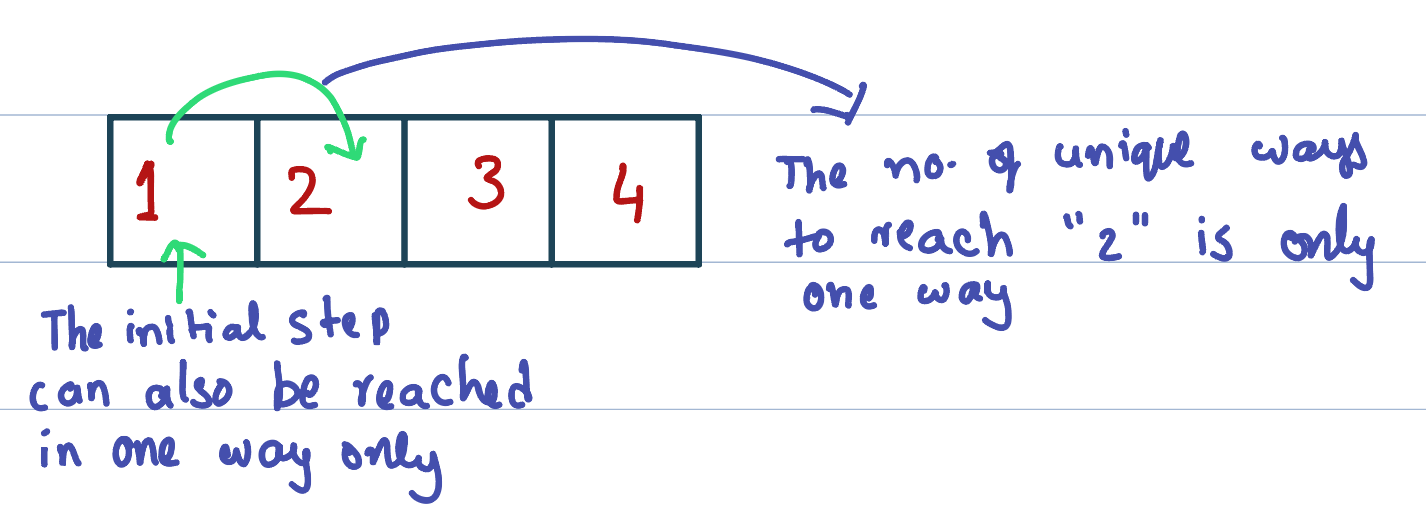 1 2 3 4
The no. of unique ways
to reach "2" is only
one way
The initial step
can also be reached
in one way only